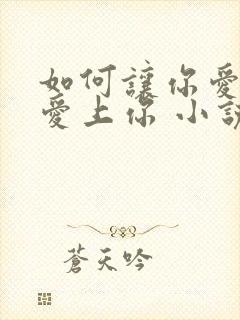 如何讓你愛
愛上你 小說
蒼天吟